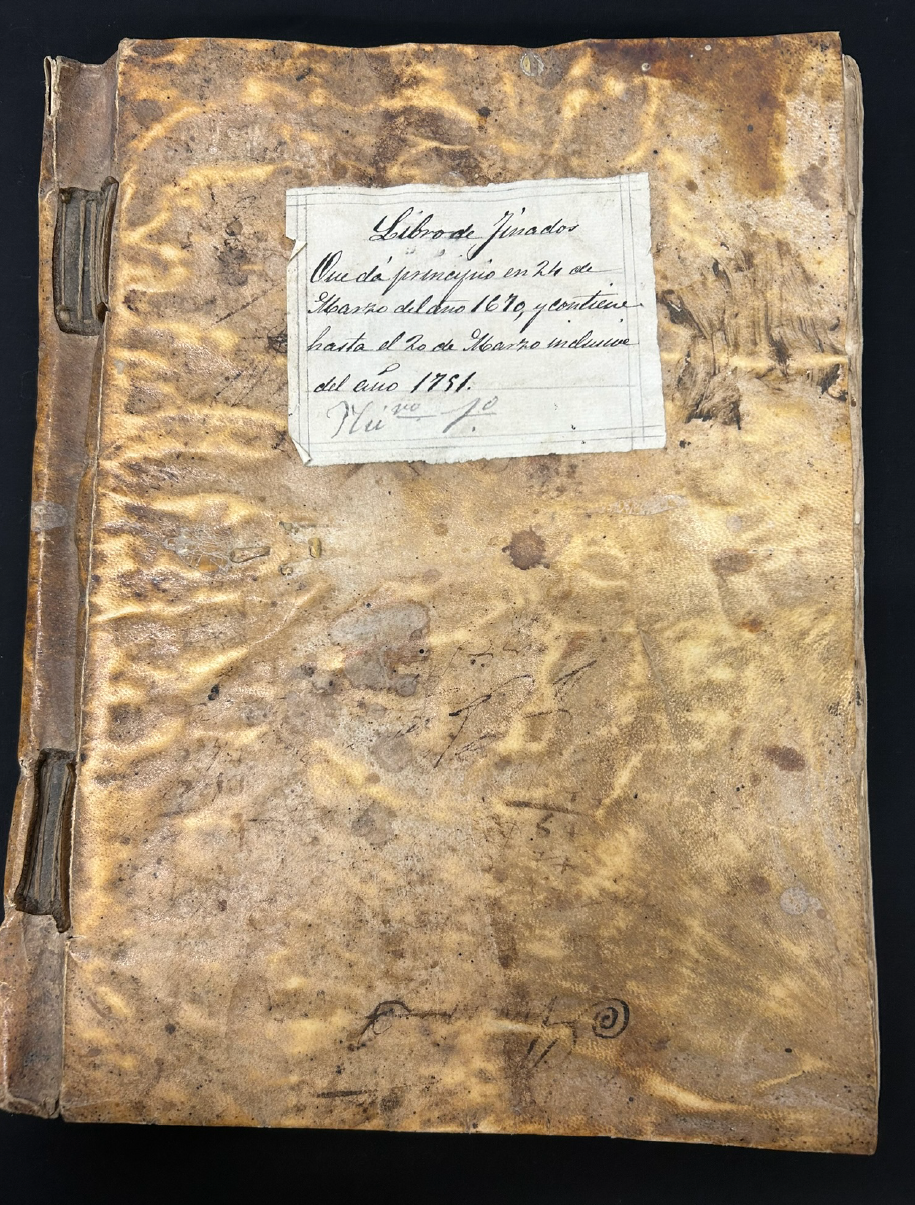 Libro de Finados
Que dá principio en 24 de
Marzo del año 1670, y contiene
hasta el 20 de Marzo inclusive
del año 1751.